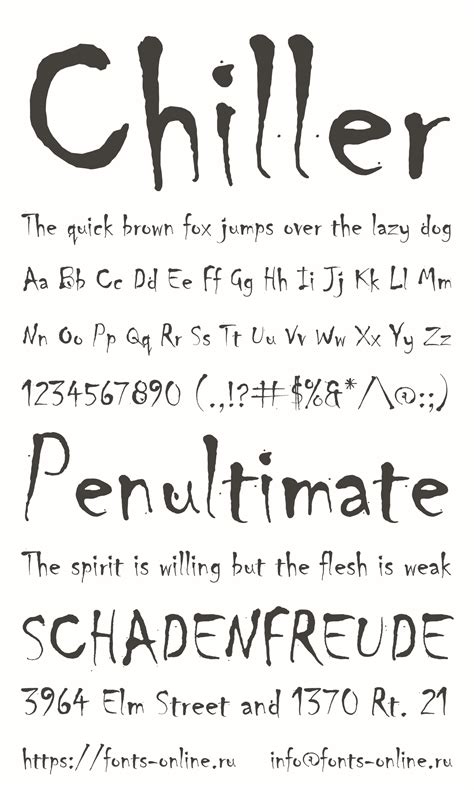 Chiller
The quick brown fox jumps over the lazy dog
Aa Bb Cc Dd Ee Ff Gg Hh Ii Jj Kk Ll Mm
Nn Oo Pp Qq Rr Ss Tt Uu Vv Ww Xx Yy Zz
1234567890 (.,!?#$%&*/\@:;)
Penultimate
The spirit is willing but the flesh is weak
SCHADENFREUDE
3964 Elm Street and 1370 Rt. 21
https://fonts-online.ru info@fonts-online.ru